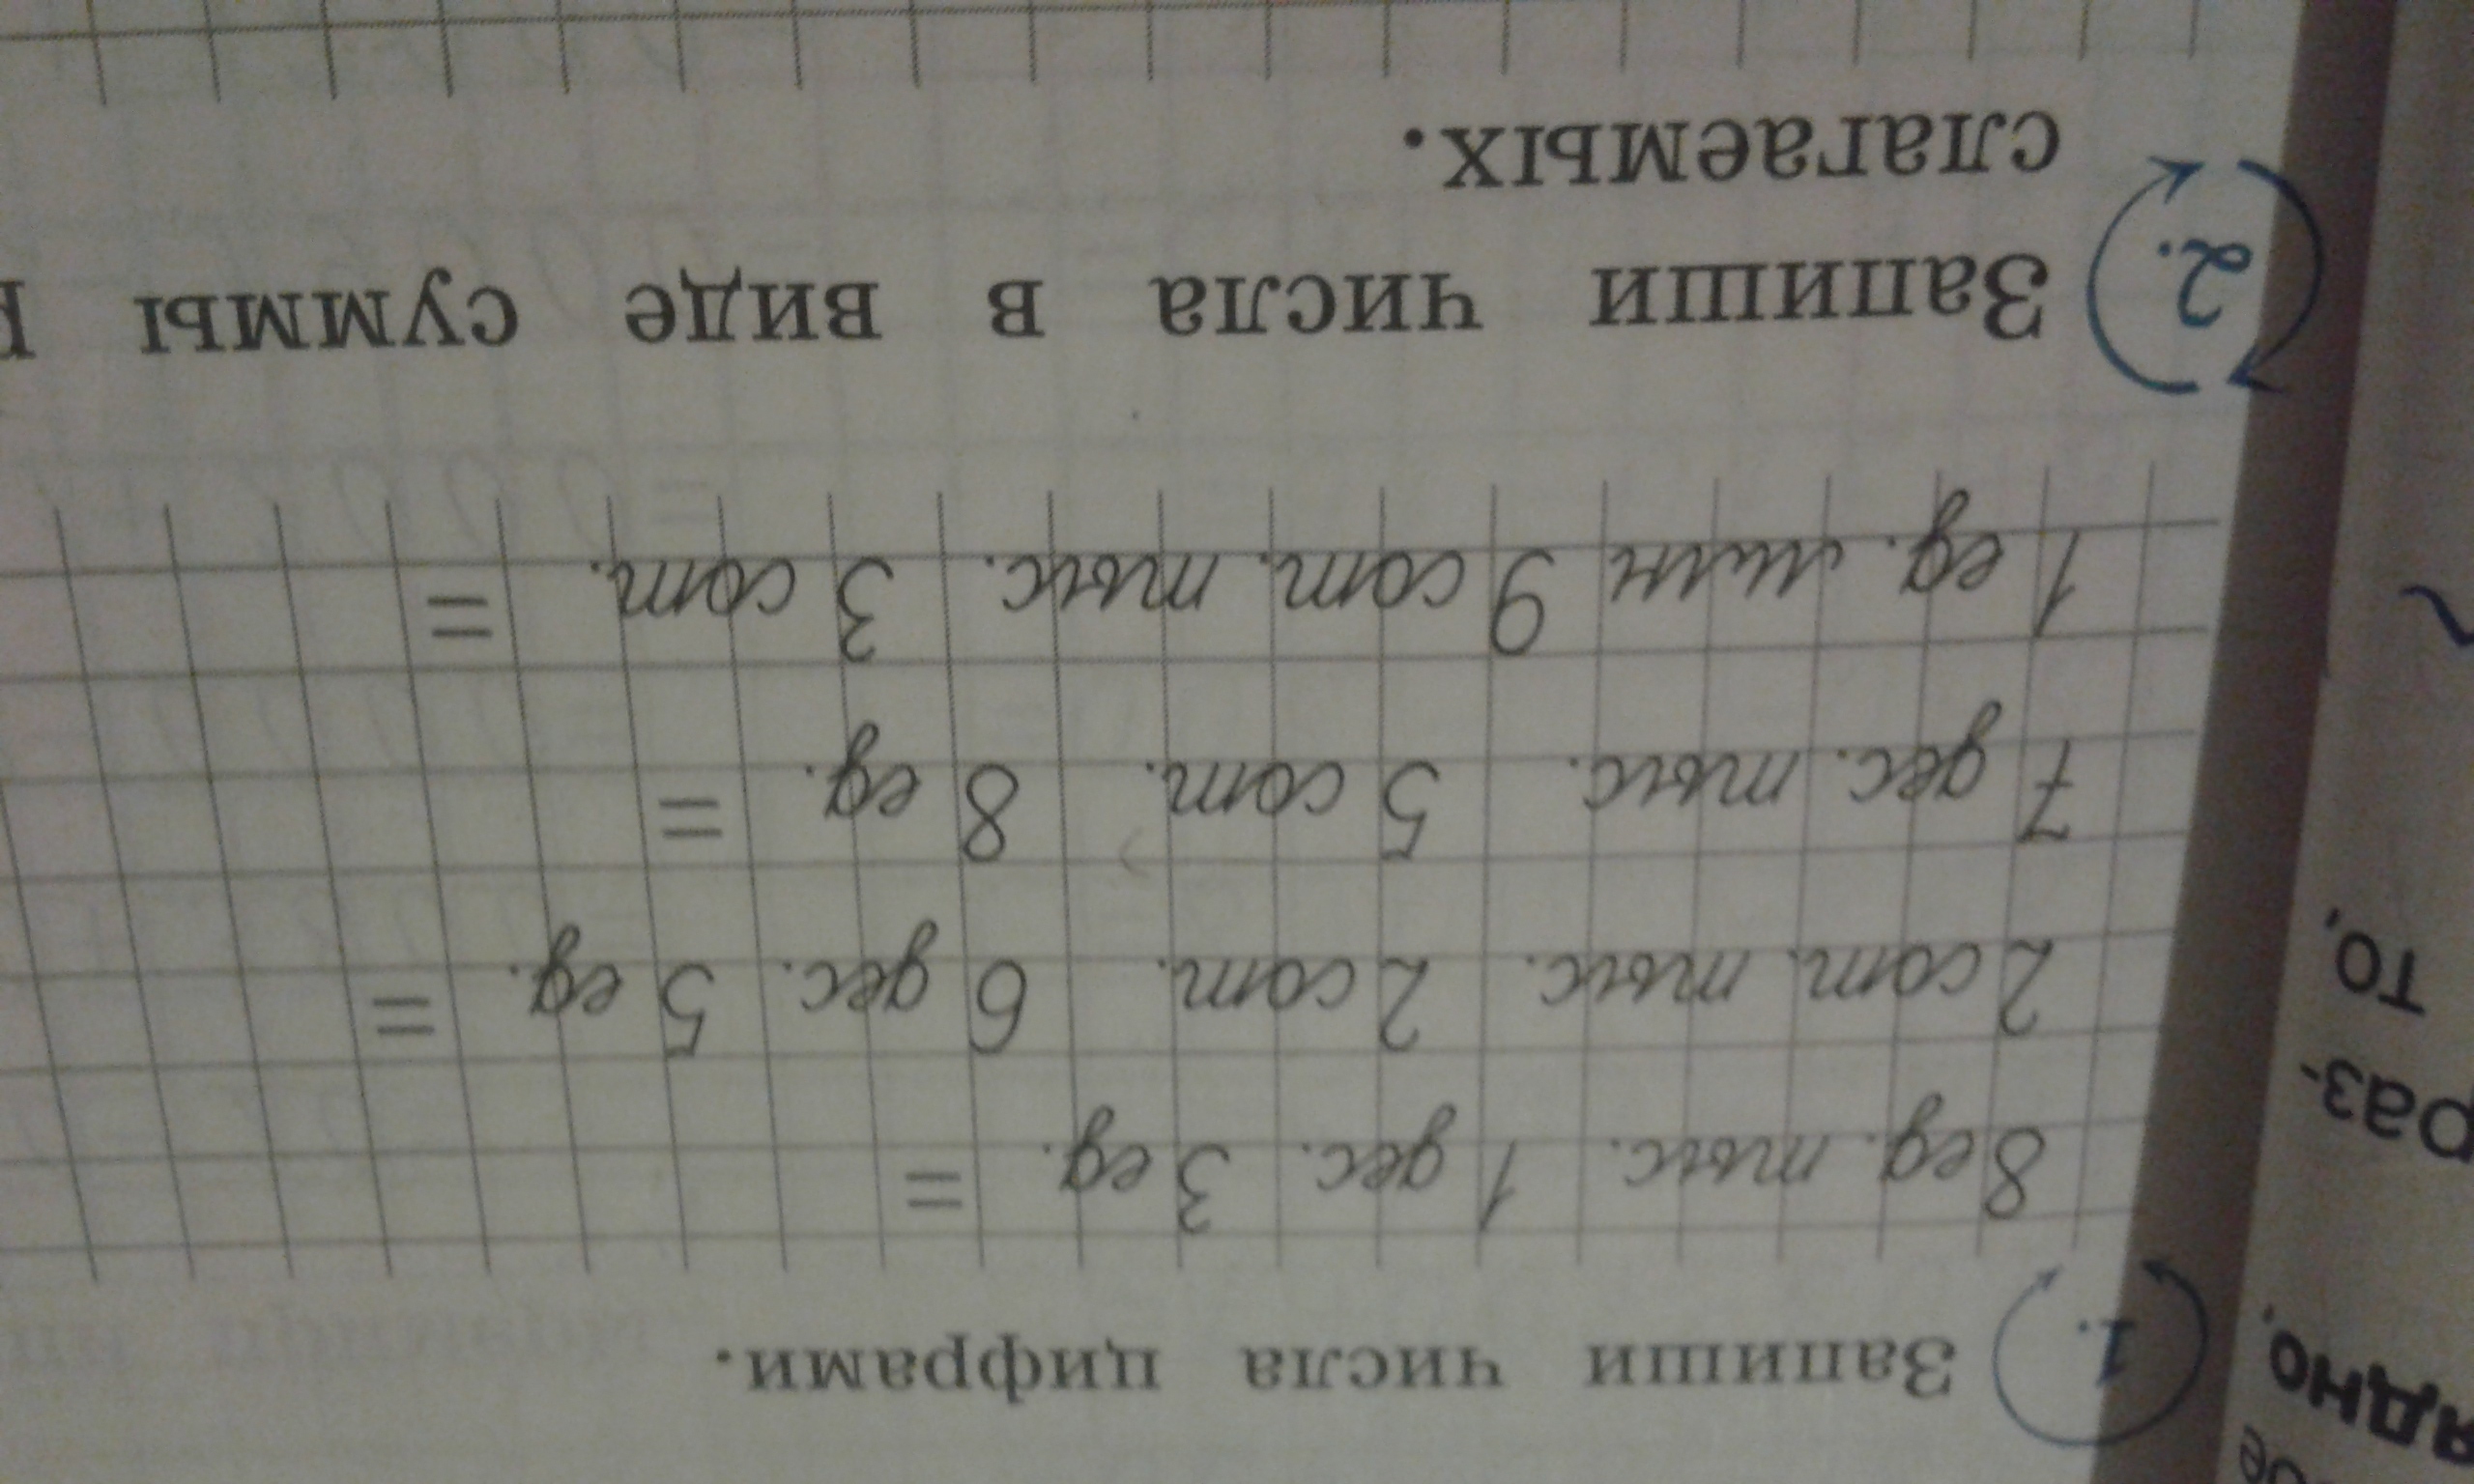 1. Запиши числа цифрами.
8 ед. тыс. 1 дес. 3 ед. =
2 сот. тыс. 2 сот. 6 дес. 5 ед. =
7 дес. тыс. 5 сот. 8 ед. =
1 ед. млн 9 сот. тыс. 3 сот. =
2. Запиши числа в виде суммы
слагаемых.
раз-
то,